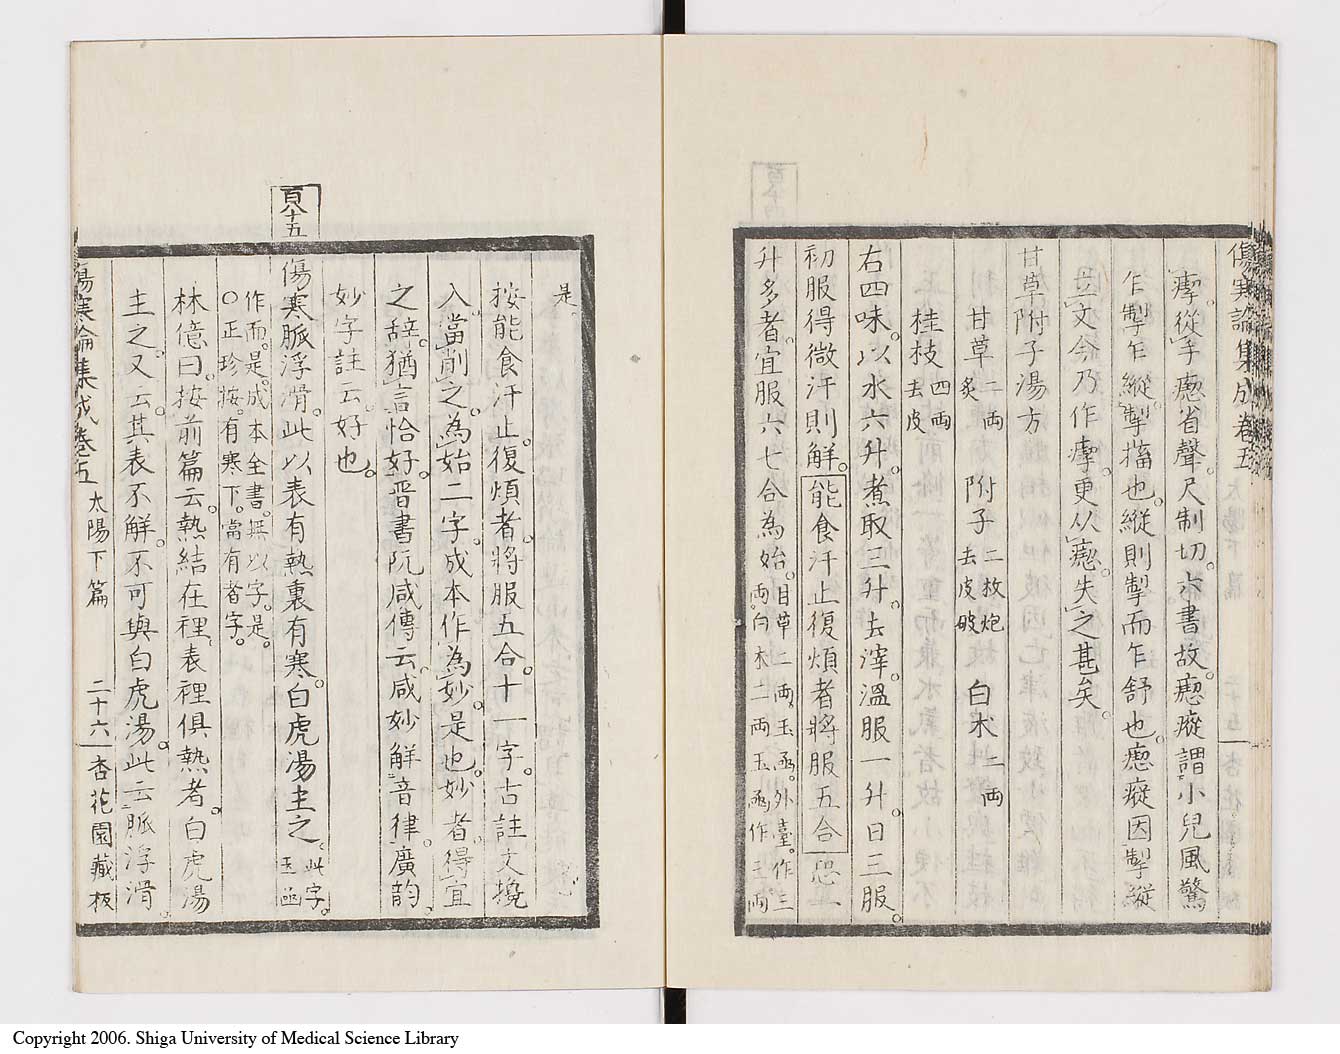 傷寒論集成卷五
瘳。從手瘛省聲。尺制切。亦書故。瘛瘲謂小兒風驚
乍掣乍縱。掣搐也。縱則掣而乍舒也。瘛瘲因掣縱
文。今乃作瘳。更从瘛失之甚矣。
甘草附子湯方
甘草二兩炙 附子二枚炮去皮破 白朮二兩
桂枝四兩去皮
右四味。以水六升。煮取三升。去滓。溫服一升。日三服。
初服得微汗則解。能食汗止復煩者將服五合恐一
升多者。宜服六七合為始。甘草二兩。玉函。外臺。作三兩。白朮二兩玉函作三兩。
是。
按能食汗止。復煩者。將服五合。十一字。古註文攙
入。當削之。為始二字。成本作為妙。是也。妙者。得宜
之辭。猶言恰好。晉書阮咸傳云。咸妙解音律。廣韵
妙字註云。好也。
百八十五
傷寒脈浮滑。此以表有熱裏有寒。白虎湯主之。此字。玉函
作而。是。成本全書。無以字。是。
○正珍按。有寒下。當有者字。
林億曰。按前篇云。熱結在裡。表裡俱熱者。白虎湯
主之。又云。其表不解。不可與白虎湯。此云脈浮滑。
傷寒論集成卷五 太陽下篇 二十六 杏花園藏板
Copyright 2006. Shiga University of Medical Science Library